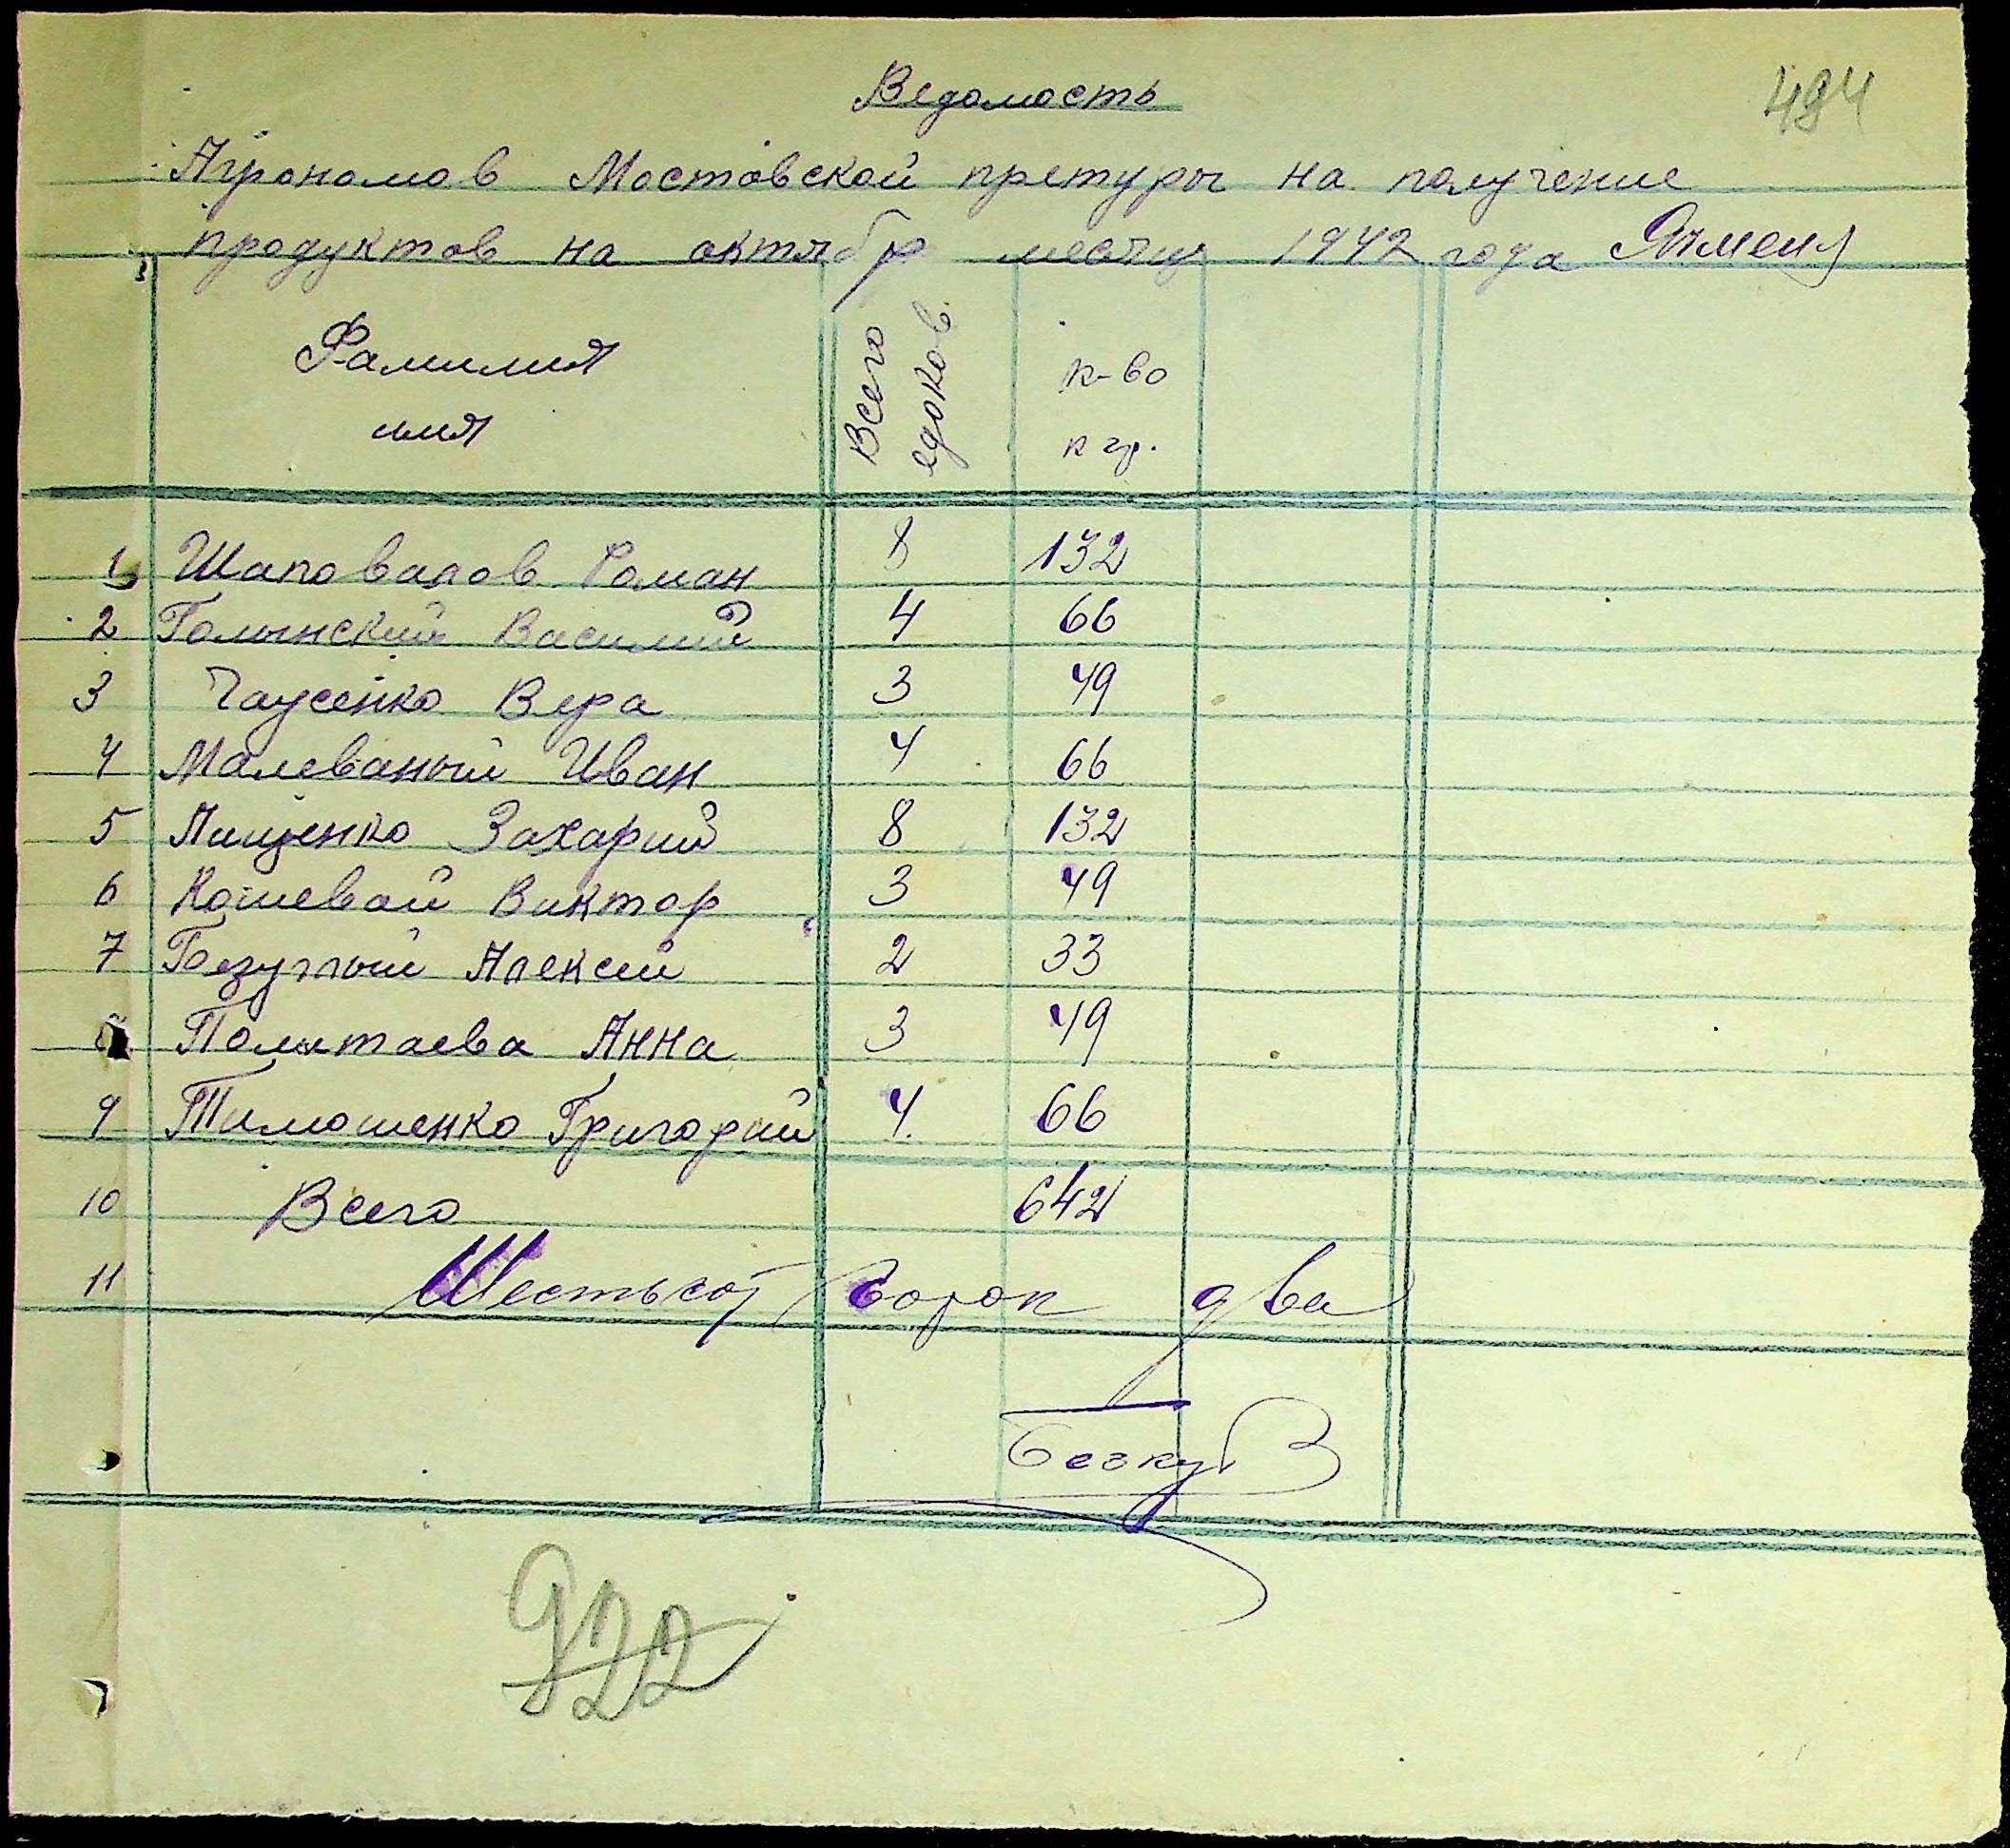 Ведомость
484
Агрономов Мостовской претуры на получение
продуктов на октябр месяц 1942 года Ячмень
Фамилия
имя
Всего
едоков
к-во
кгр.
1 Шаповалов Роман 8 132
2 Голынский Василий 4 66
3 Чаусенко Вера 3 49
4 Малеваный Иван 4 66
5 Пищенко Захарий 8 132
6 Кошевой Виктор 3 49
7 Безуглый Алексей 2 33
8 Полытаева Анна 3 49
9 Тимошенко Григорий 4 66
10 Всего 642
11 Шестьсот сорок два
922